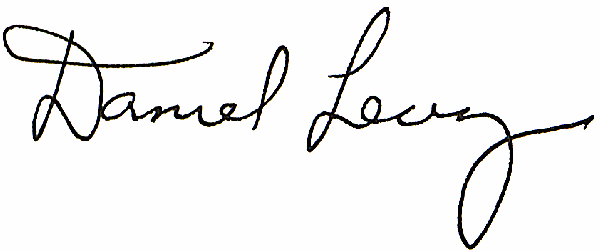 Daniel Levy